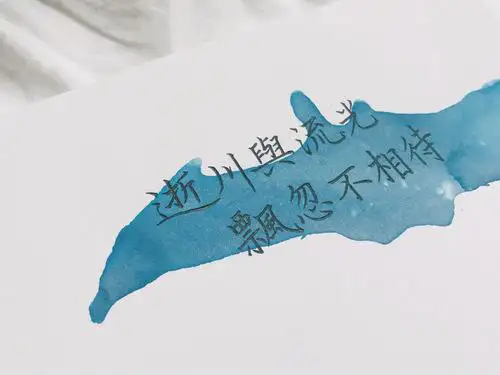 逝川與流光
飄忽不相待